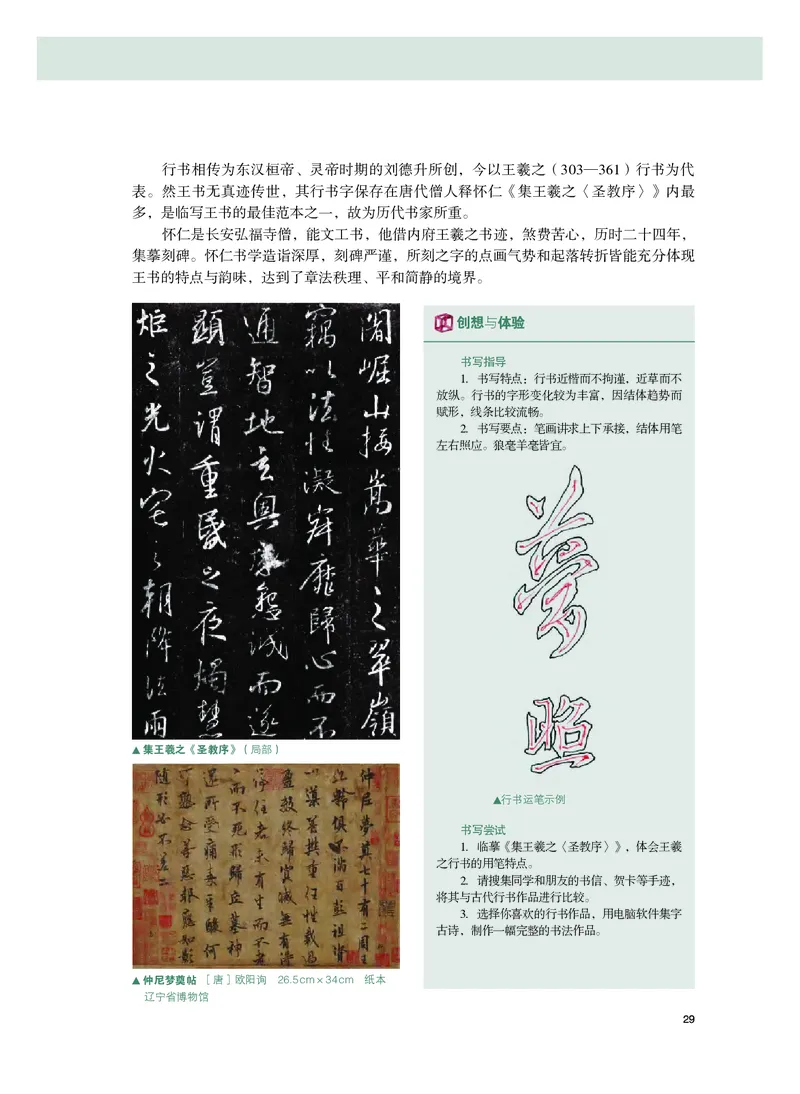 行书相传为东汉桓帝、灵帝时期的刘德升所创，今以王羲之（303—361）行书为代
表。然王书无真迹传世，其行书字保存在唐代僧人释怀仁《集王羲之〈圣教序〉》内最
多，是临写王书的最佳范本之一，故为历代书家所重。
怀仁是长安弘福寺僧，能文工书，他借内府王羲之书迹，煞费苦心，历时二十四年，
集摹刻碑。怀仁书学造诣深厚，刻碑严谨，所刻之字的点画气势和起落转折皆能充分体现
王书的特点与韵味，达到了章法秩理、平和简静的境界。
闍崛山接嵩華之翠嶺
竊以法性凝寂靡歸心而不
通智地玄奥感懇誠而遂
顯豈謂重昏之夜燭慧
炬之光火宅之朝降法雨
▲集王羲之《圣教序》（局部）
仲尼夢奠七十有二周王
九齡俱不滿百彭祖資
以導養樊重任性裁過
盈數終歸宜滅無有得
停住者未有生而不老
而不死形歸丘墓神
還所受痛毒辛酸何
可熟念善惡報應如影
隨形必不差二
▲仲尼梦奠帖 ［唐］欧阳询 26.5cm×34cm 纸本
辽宁省博物馆
创想与体验
书写指导
1. 书写特点：行书近楷而不拘谨，近草而不
放纵。行书的字形变化较为丰富，因结体趋势而
赋形，线条比较流畅。
2. 书写要点：笔画讲求上下承接，结体用笔
左右照应。狼毫羊毫皆宜。
夢
照
▲行书运笔示例
书写尝试
1. 临摹《集王羲之〈圣教序〉》，体会王羲
之行书的用笔特点。
2. 请搜集同学和朋友的书信、贺卡等手迹，
将其与古代行书作品进行比较。
3. 选择你喜欢的行书作品，用电脑软件集字
古诗，制作一幅完整的书法作品。
29